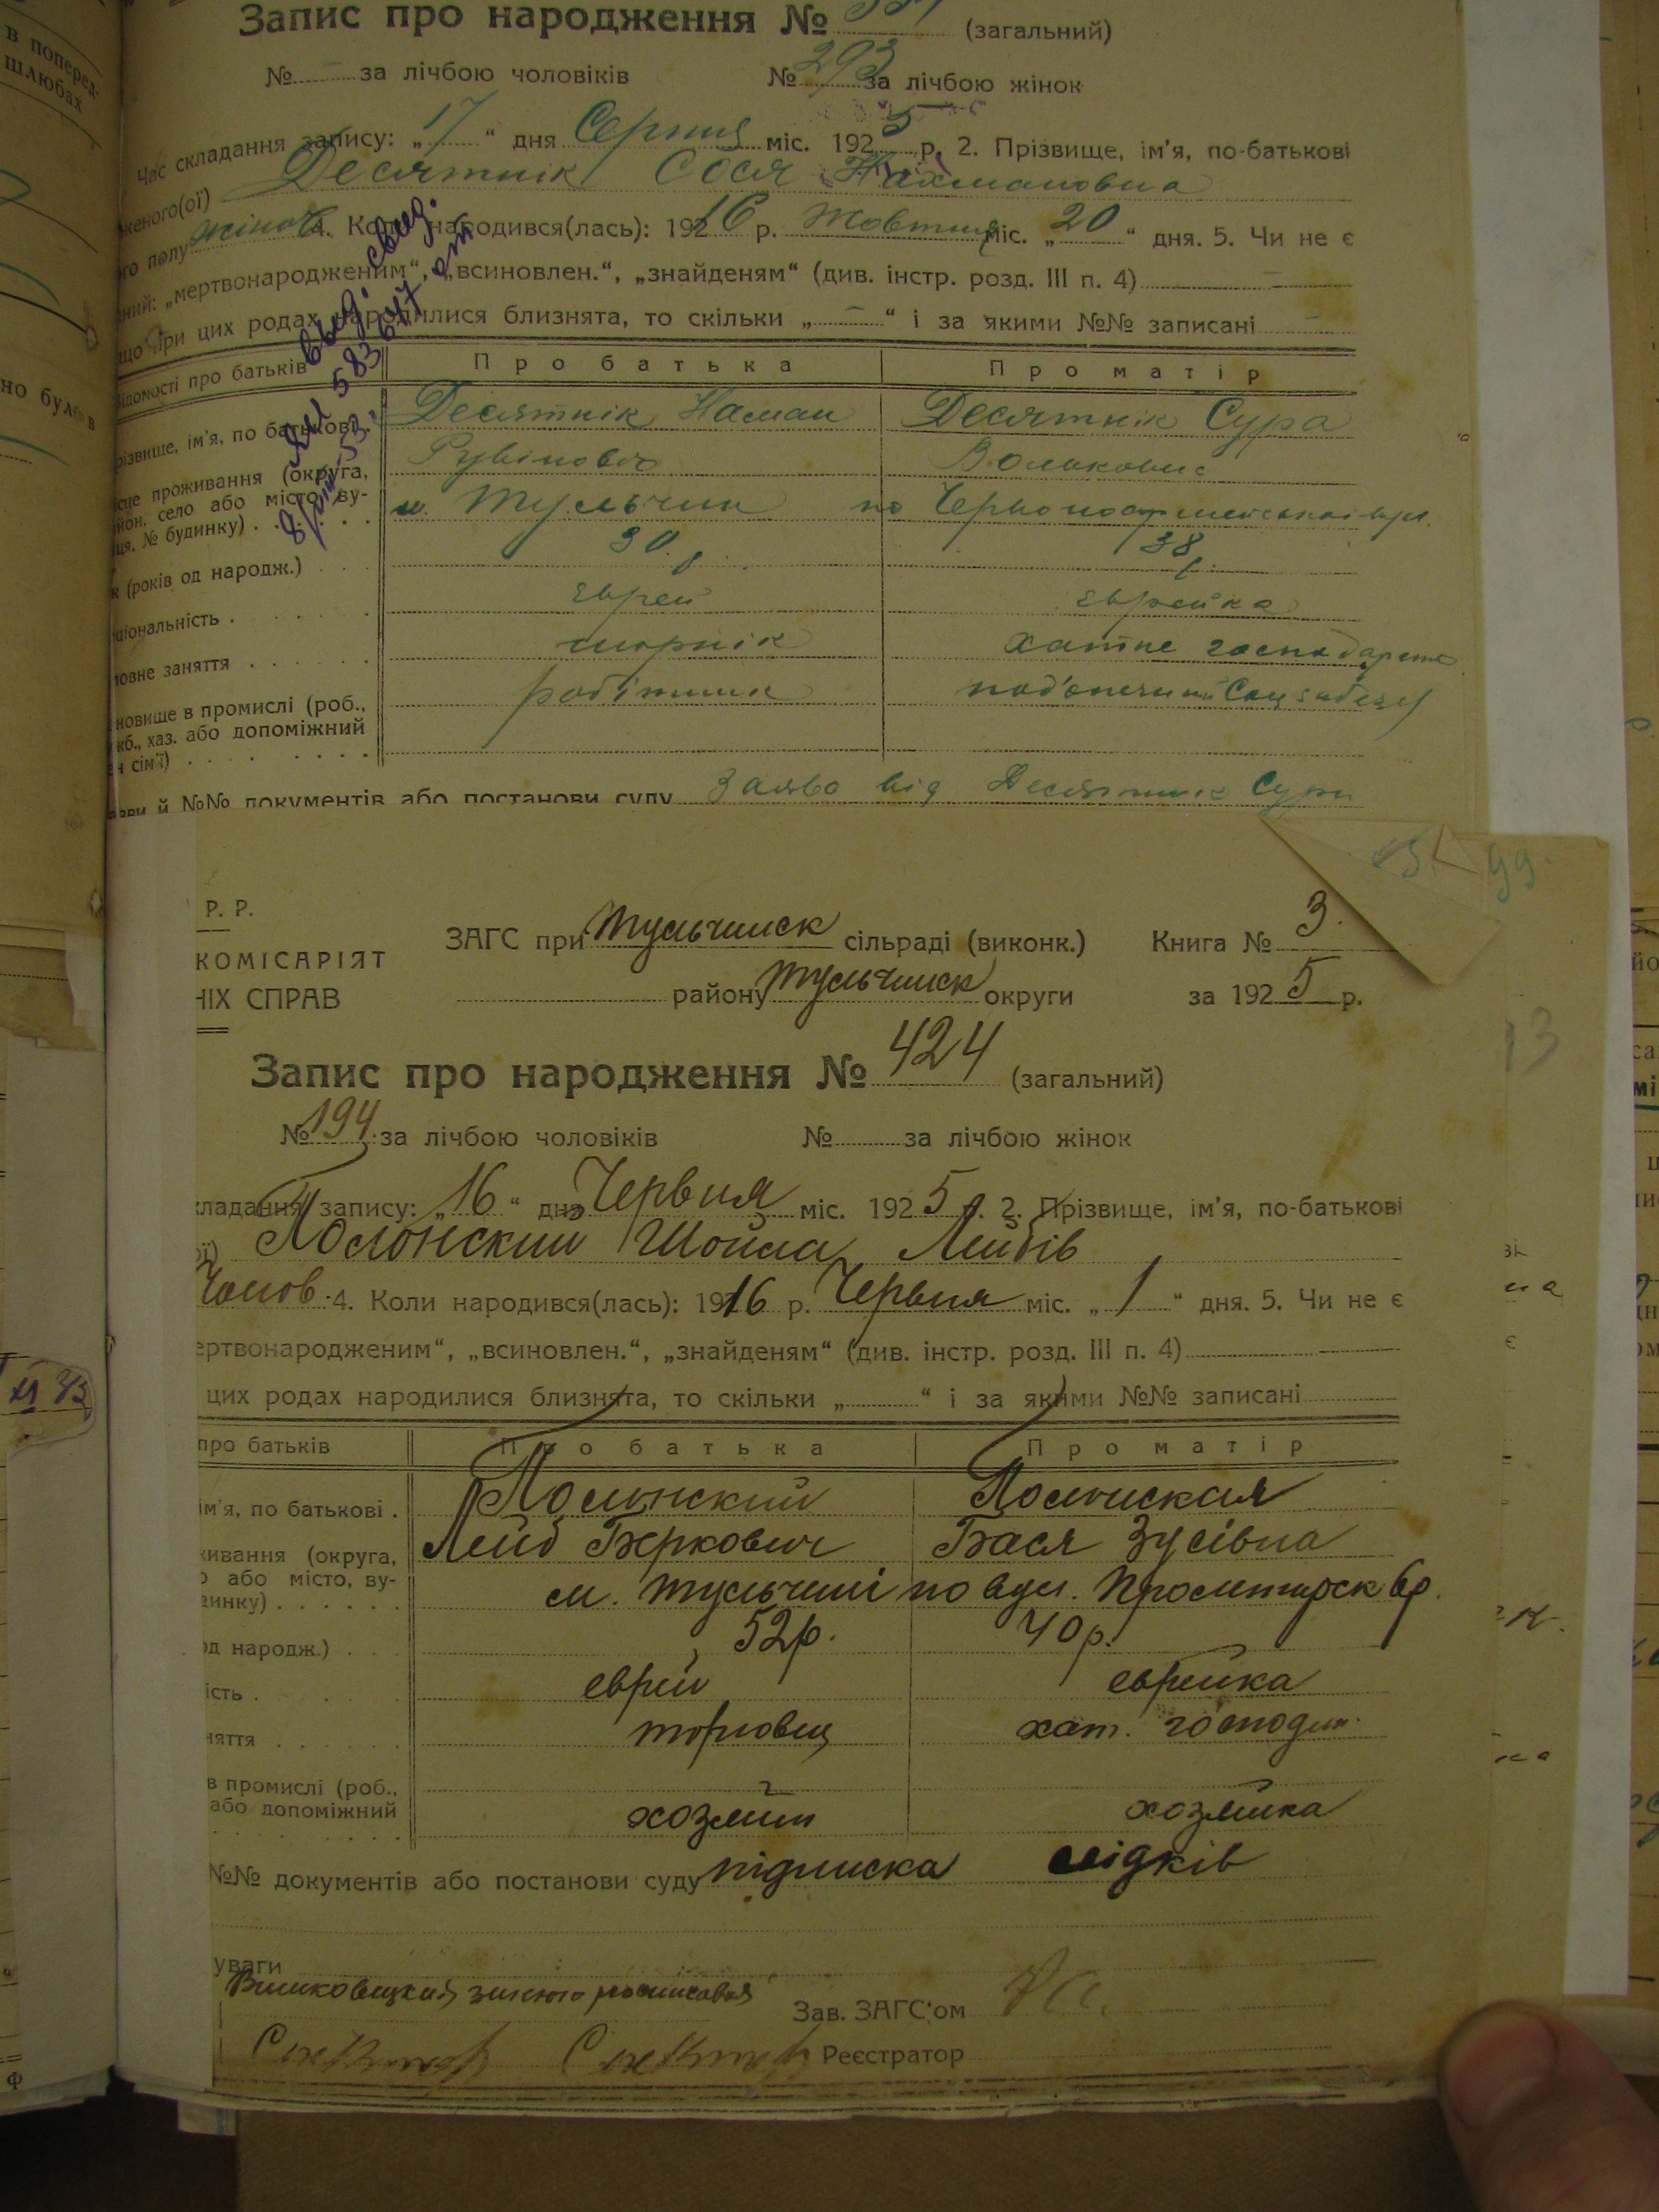 в поперед-
шлюбах
но було в
Запис про народження № (загальний)
№ – за лічбою чоловіків № 293 за лічбою жінок
Час складання запису: „17“ дня Серпня міс. 1925 р. 2. Прізвище, ім'я, по-батькові
женого(ої) Десятнік Сося Нахмановна
го полу жіноч. 4. Коли народився(лась): 1926 16 р. Жовтня міс. „20“ дня. 5. Чи не є
ний: „мертвонародженим“, „всиновлен.“, „знайденям“ (див. інстр. розд. III п. 4) –
що при цих родах народилися близнята, то скільки „–“ і за якими №№ записані –
відомості про батьків Про батька Про матір
різвище, ім'я, по батькові Десятнік Наман Десятнік Сура
Рувінович Вольковна
сце проживання (округа,
йон, село або місто, ву-
ця, № будинку) м. Тульчин по Червоноармейській вул.
к (років од народж.) 30 р. 38 р.
ціональність єврей єврейка
ловне заняття шорнік хатне господарство
новище в промислі (роб.,
жб., хаз. або допоміжний
н сім'ї) робітник
й №№ документів або постанови суду Заява від Десятник Сури
Р. Р.
КОМІСАРІЯТ
НІХ СПРАВ
ЗАГС при Тульчинск сільраді (виконк.) Книга № 3.
району Тульчинск округи за 1925 р.
Запис про народження № 424 (загальний)
№ 194 за лічбою чоловіків № за лічбою жінок
кладання запису: „16“ дня Червня міс. 1925 р. 2. Прізвище, ім'я, по-батькові
ої) Полонский Шойла Лейбів
Чолов. 4. Коли народився(лась): 1916 р. Червня міс. „1“ дня. 5. Чи не є
ертвонародженим“, „всиновлен.“, „знайденям“ (див. інстр. розд. III п. 4)
цих родах народилися близнята, то скільки „ “ і за якими №№ записані
про батьків Про батька Про матір
ім'я, по батькові . Полонский Полонская
Лейб Беркович Бася Зусівна
живання (округа,
о або місто, ву-
динку) м. Тульчині по вул. Пролетарск
од народж.) 52 р. 40 р.
ість . еврей еврейка
няття торговец хат. господин.
в промислі (роб.,
або допоміжний хозяин хозяйка
№№ документів або постанови суду підписка свідків
уваги
Зав. ЗАГС'ом
Реєстратор